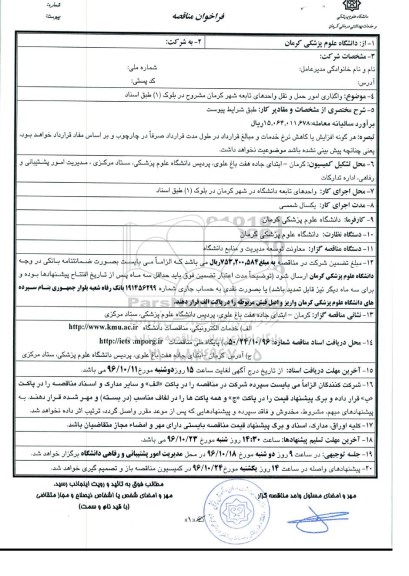 دانشگاه علوم پزشکی کرمان
فراخوان مناقصه
شماره:
پیوست:
۱- از: دانشگاه علوم پزشکی کرمان
۲- به شرکت:
۳- مشخصات شرکت:
نام و نام خانوادگی مدیرعامل:
شماره ملی:
آدرس:
کد پستی:
۴- موضوع: واگذاری امور حمل و نقل واحدهای تابعه شهر کرمان مشروح در بلوک (۱) طبق اسناد
۵- شرح مختصری از مشخصات و مقادیر کار: طبق شرایط پیوست
برآورد سالیانه معامله: ۱۵,۰۶۴,۰۱۱,۶۷۸ ریال
تبصره: هر گونه افزایش یا کاهش نرخ خدمات و مبالغ قرارداد در طول مدت قرارداد صرفاً در چارچوب و بر اساس مفاد قرارداد خواهد بود. یعنی چنانچه پیش بینی نشده باشد موضوعیت نخواهد داشت.
۶- محل تشکیل کمیسیون: کرمان – ابتدای جاده هفت باغ علوی، پردیس دانشگاه علوم پزشکی، ستاد مرکزی ، مدیریت امور پشتیبانی و
رفاهی، اداره تدارکات
۷- محل اجرای کار: واحدهای تابعه دانشگاه در شهر کرمان در بلوک (۱) طبق اسناد
۸- مدت اجرای کار: یکسال شمسی
۹- کارفرما: دانشگاه علوم پزشکی کرمان
۱۰- دستگاه نظارت: دانشگاه علوم پزشکی کرمان
۱۱- دستگاه مناقصه گزار: معاونت توسعه مدیریت و منابع دانشگاه
۱۲- مبلغ تضمین شرکت در مناقصه به مبلغ ۷۵۳,۲۰۰,۵۸۳ ریال می باشد که الزاماً می بایست بصورت ضمانتنامه بانکی در وجه
دانشگاه علوم پزشکی کرمان ارسال شود (توضیحاً مدت اعتبار تضمین فوق باید حداقل سه ماه پس از تاریخ افتتاح پیشنهادها بوده و
برای سه ماه دیگر نیز قابل تمدید باشد) یا بصورت نقدی به حساب جاری شماره بانک رفاه شعبه بلوار جمهوری بنام سپرده
های دانشگاه علوم پزشکی کرمان واریز و اصل فیش مربوطه را در پاکت الف قرار دهند.
۱۳- نشانی مناقصه گزار: کرمان – ابتدای جاده هفت باغ علوی، پردیس دانشگاه علوم پزشکی، ستاد مرکزی
۱۴- محل دریافت اسناد مناقصه: شماره ۵۰/۲۴/۱۰/۹۶
الف) خدمات الکترونیکی، مناقصات دانشگاه http://www.kmu.ac.ir
ب) پایگاه ملی مناقصات http://iets.mporg.ir
ج) آدرس: کرمان – ابتدای جاده هفت باغ علوی، پردیس دانشگاه علوم پزشکی، ستاد مرکزی
۱۵- آخرین مهلت دریافت اسناد: از تاریخ درج آگهی لغایت ساعت ۱۵ روز دوشنبه مورخ ۹۶/۱۰/۱۱ می باشد.
۱۶- شرکت کنندگان الزاماً می بایست سپرده شرکت در مناقصه را در پاکت «الف» و سایر مدارک و اسناد مناقصه را در پاکت
«ب» قرار داده و برگ پیشنهاد قیمت را در پاکت «ج» و همه پاکت ها را در لفاف مناسب (در بسته) و مهر شده قرار دهند. به
پیشنهادهای مبهم، مشروط، مخدوش و فاقد سپرده و پیشنهادهایی که پس از موعد مقرر واصل گردد، ترتیب اثر داده نخواهد شد.
۱۷- کلیه اوراق، مدارک، اسناد و برگ پیشنهاد قیمت مناقصه بایستی دارای مهر و امضاء مجاز متقاضیان باشد.
۱۸- آخرین مهلت تسلیم پیشنهادها: ساعت ۱۴:۳۰ روز شنبه مورخ ۹۶/۱۰/۲۳ می باشد.
۱۹- جلسه توجیهی: در ساعت ۹ روز دو شنبه مورخ ۹۶/۱۰/۱۸ در محل مدیریت امور پشتیبانی و رفاهی دانشگاه برگزار خواهد شد.
۲۰- پیشنهادهای واصله در ساعت ۱۴ روز یکشنبه مورخ ۹۶/۱۰/۲۴ در کمیسیون مناقصه باز و تصمیم گیری خواهد شد.
مطالب فوق به تائید و رویت اینجانب رسید.
مهر و امضای مسئول واحد مناقصه گزار
مهر و امضای شخص یا اشخاص ذیصلاح و مجاز متقاضی
(با قید نام و سمت)